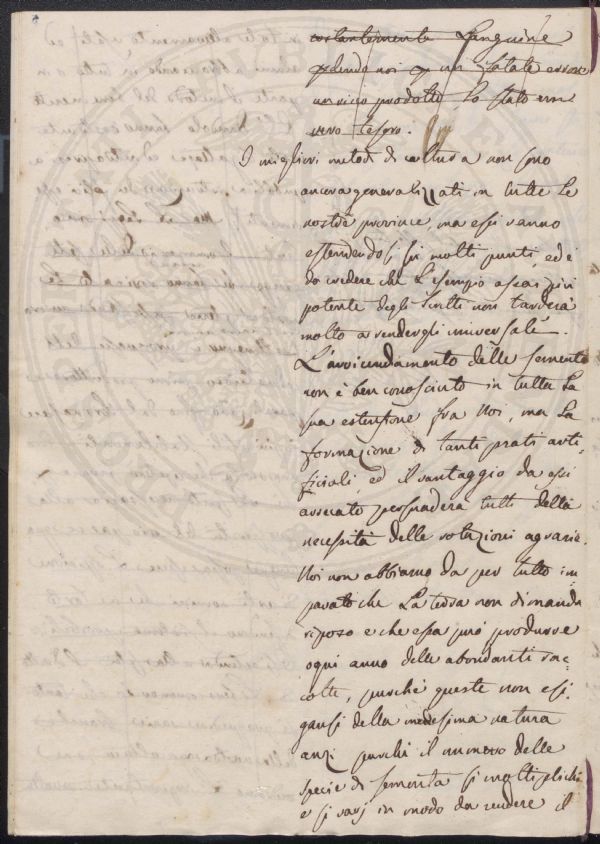 costantemente Languire
perdendo noi per un fatale errore
un ricco prodotto, lo stato un
vero tesoro.
I migliori metodi di coltura non sono
ancora generalizzati in tutte le
nostre province, ma essi vanno
estendendosi su molti punti, ed è
da credere che L'esempio assai più
potente degli scritti non tarderà
molto a rendergli universale.
L'avvicendamento delle semente
non è ben conosciuto in tutta La
sua estensione fra Noi, ma La
formazione di tanti prati arti-
ficiali, ed il vantaggio da essi
arrecato persuaderà tutti della
necessità delle rotazioni agrarie.
Noi non abbiamo da per tutto im-
parato che La terra non dimanda
riposo e che essa può produrre
ogni anno delle abbondanti rac-
colte, purchè queste non esi-
gansi della medesima natura
anzi purchè il numero delle
specie di sementa si moltiplichi
e si varj in modo da rendere il